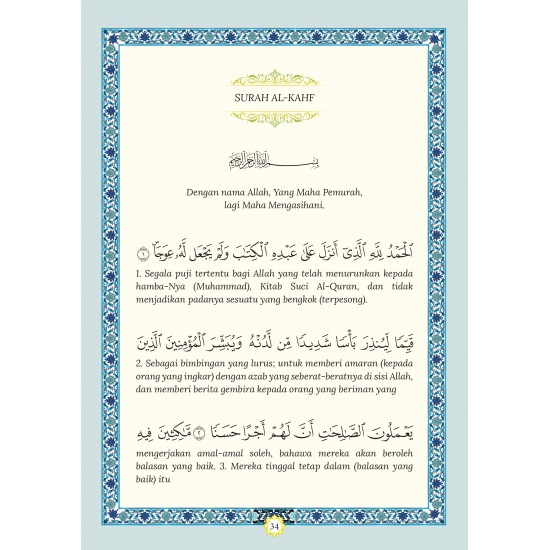 SURAH AL-KAHF
بِسْمِ ٱللَّهِ ٱلرَّحْمَٰنِ ٱلرَّحِيمِ
Dengan nama Allah, Yang Maha Pemurah,
lagi Maha Mengasihani.
ٱلْحَمْدُ لِلَّهِ ٱلَّذِىٓ أَنزَلَ عَلَىٰ عَبْدِهِ ٱلْكِتَٰبَ وَلَمْ يَجْعَل لَّهُۥ عِوَجَاۜ ١
1. Segala puji tertentu bagi Allah yang telah menurunkan kepada
hamba-Nya (Muhammad), Kitab Suci Al-Quran, dan tidak
menjadikan padanya sesuatu yang bengkok (terpesong).
قَيِّمًا لِّيُنذِرَ بَأْسًا شَدِيدًا مِّن لَّدُنْهُ وَيُبَشِّرَ ٱلْمُؤْمِنِينَ ٱلَّذِينَ
2. Sebagai bimbingan yang lurus; untuk memberi amaran (kepada
orang yang ingkar) dengan azab yang seberat-beratnya di sisi Allah,
dan memberi berita gembira kepada orang yang beriman yang
يَعْمَلُونَ ٱلصَّٰلِحَٰتِ أَنَّ لَهُمْ أَجْرًا حَسَنًا ٢ مَّٰكِثِينَ فِيهِ
mengerjakan amal-amal soleh, bahawa mereka akan beroleh
balasan yang baik. 3. Mereka tinggal tetap dalam (balasan yang
baik) itu
34